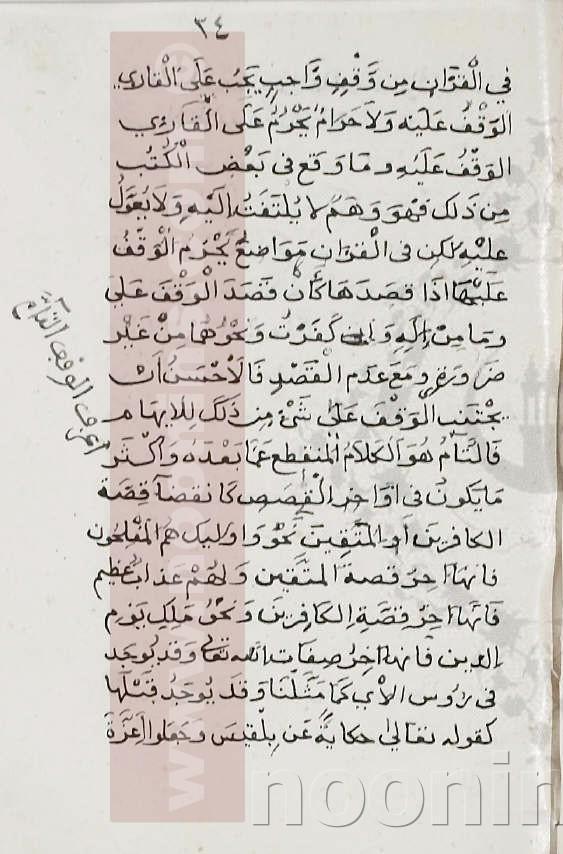 ٣٤
في الْقرْان مِن وَقْفٍ وَاجِبٍ يَجِبُ عَلَى الْقاري
الوَقْفُ عَلَيْه وَلَا حَرَامٌ يَحْرُمُ عَلَى الْقَارِي
الوَقْفُ عَلَيْهِ وما وقع فى بَعْض الْكُتُب
مِن ذَلك فهوَ وَهَمٌ لا يُلتَفتُ اِلَيْهِ وَلَا يُعَوَّلُ
عليْهِ لكن فى الْقرْان مَوَاضِعٌ يَحْرُم الْوَقْفُ
عَلَيْهَا اذَا قصَدَهَا كَأَن قصَدَ الْوَقْفَ عَلَى
ومَا مِنْ اِلَهٍ وَانى كَفَرْتُ وَنَحْوُهُما مِنْ غَيْر
ضَرورَةٍ ومَع عدَم الْقَصْدِ فالاَحْسَنُ اَن
يجتنب الوَقْفَ عَلىٰ شَىْءٍ مِن ذَلِكَ لِلايهَام
فَالتّامُ هُوَ الْكلامُ المنْقطِع عَمّا بَعْدَهُ وَاكْثر
مَا يكونُ فى اوَاخِر الْقِصَصِ كَانقضاءِ قِصَّةِ
الكافرين أو المتَّقِينَ نَحْوَ وَاوليك هُم المفْلِحُون
فانهَا اخِرُ قصة المتّقين وَلهُمْ عذابٌ عظيم
فَانَّهَا اخِرُ قِصَّةِ الكافِرينَ وَنَحْوُ مَلِكِ يَوْم
الدين فانها اخِرُ صِفَات الله تعالى وَقد يُوجَد
فى رُوس الْآي كمَا مَثَّلنَا وَقد يُوجَدُ قَبْلهَا
كقوله تعالىٰ حكايةً عَن بِلْقِيسَ وَجَعلوا أَعِزَّةَ
اعرف الوقف التآم
noonin